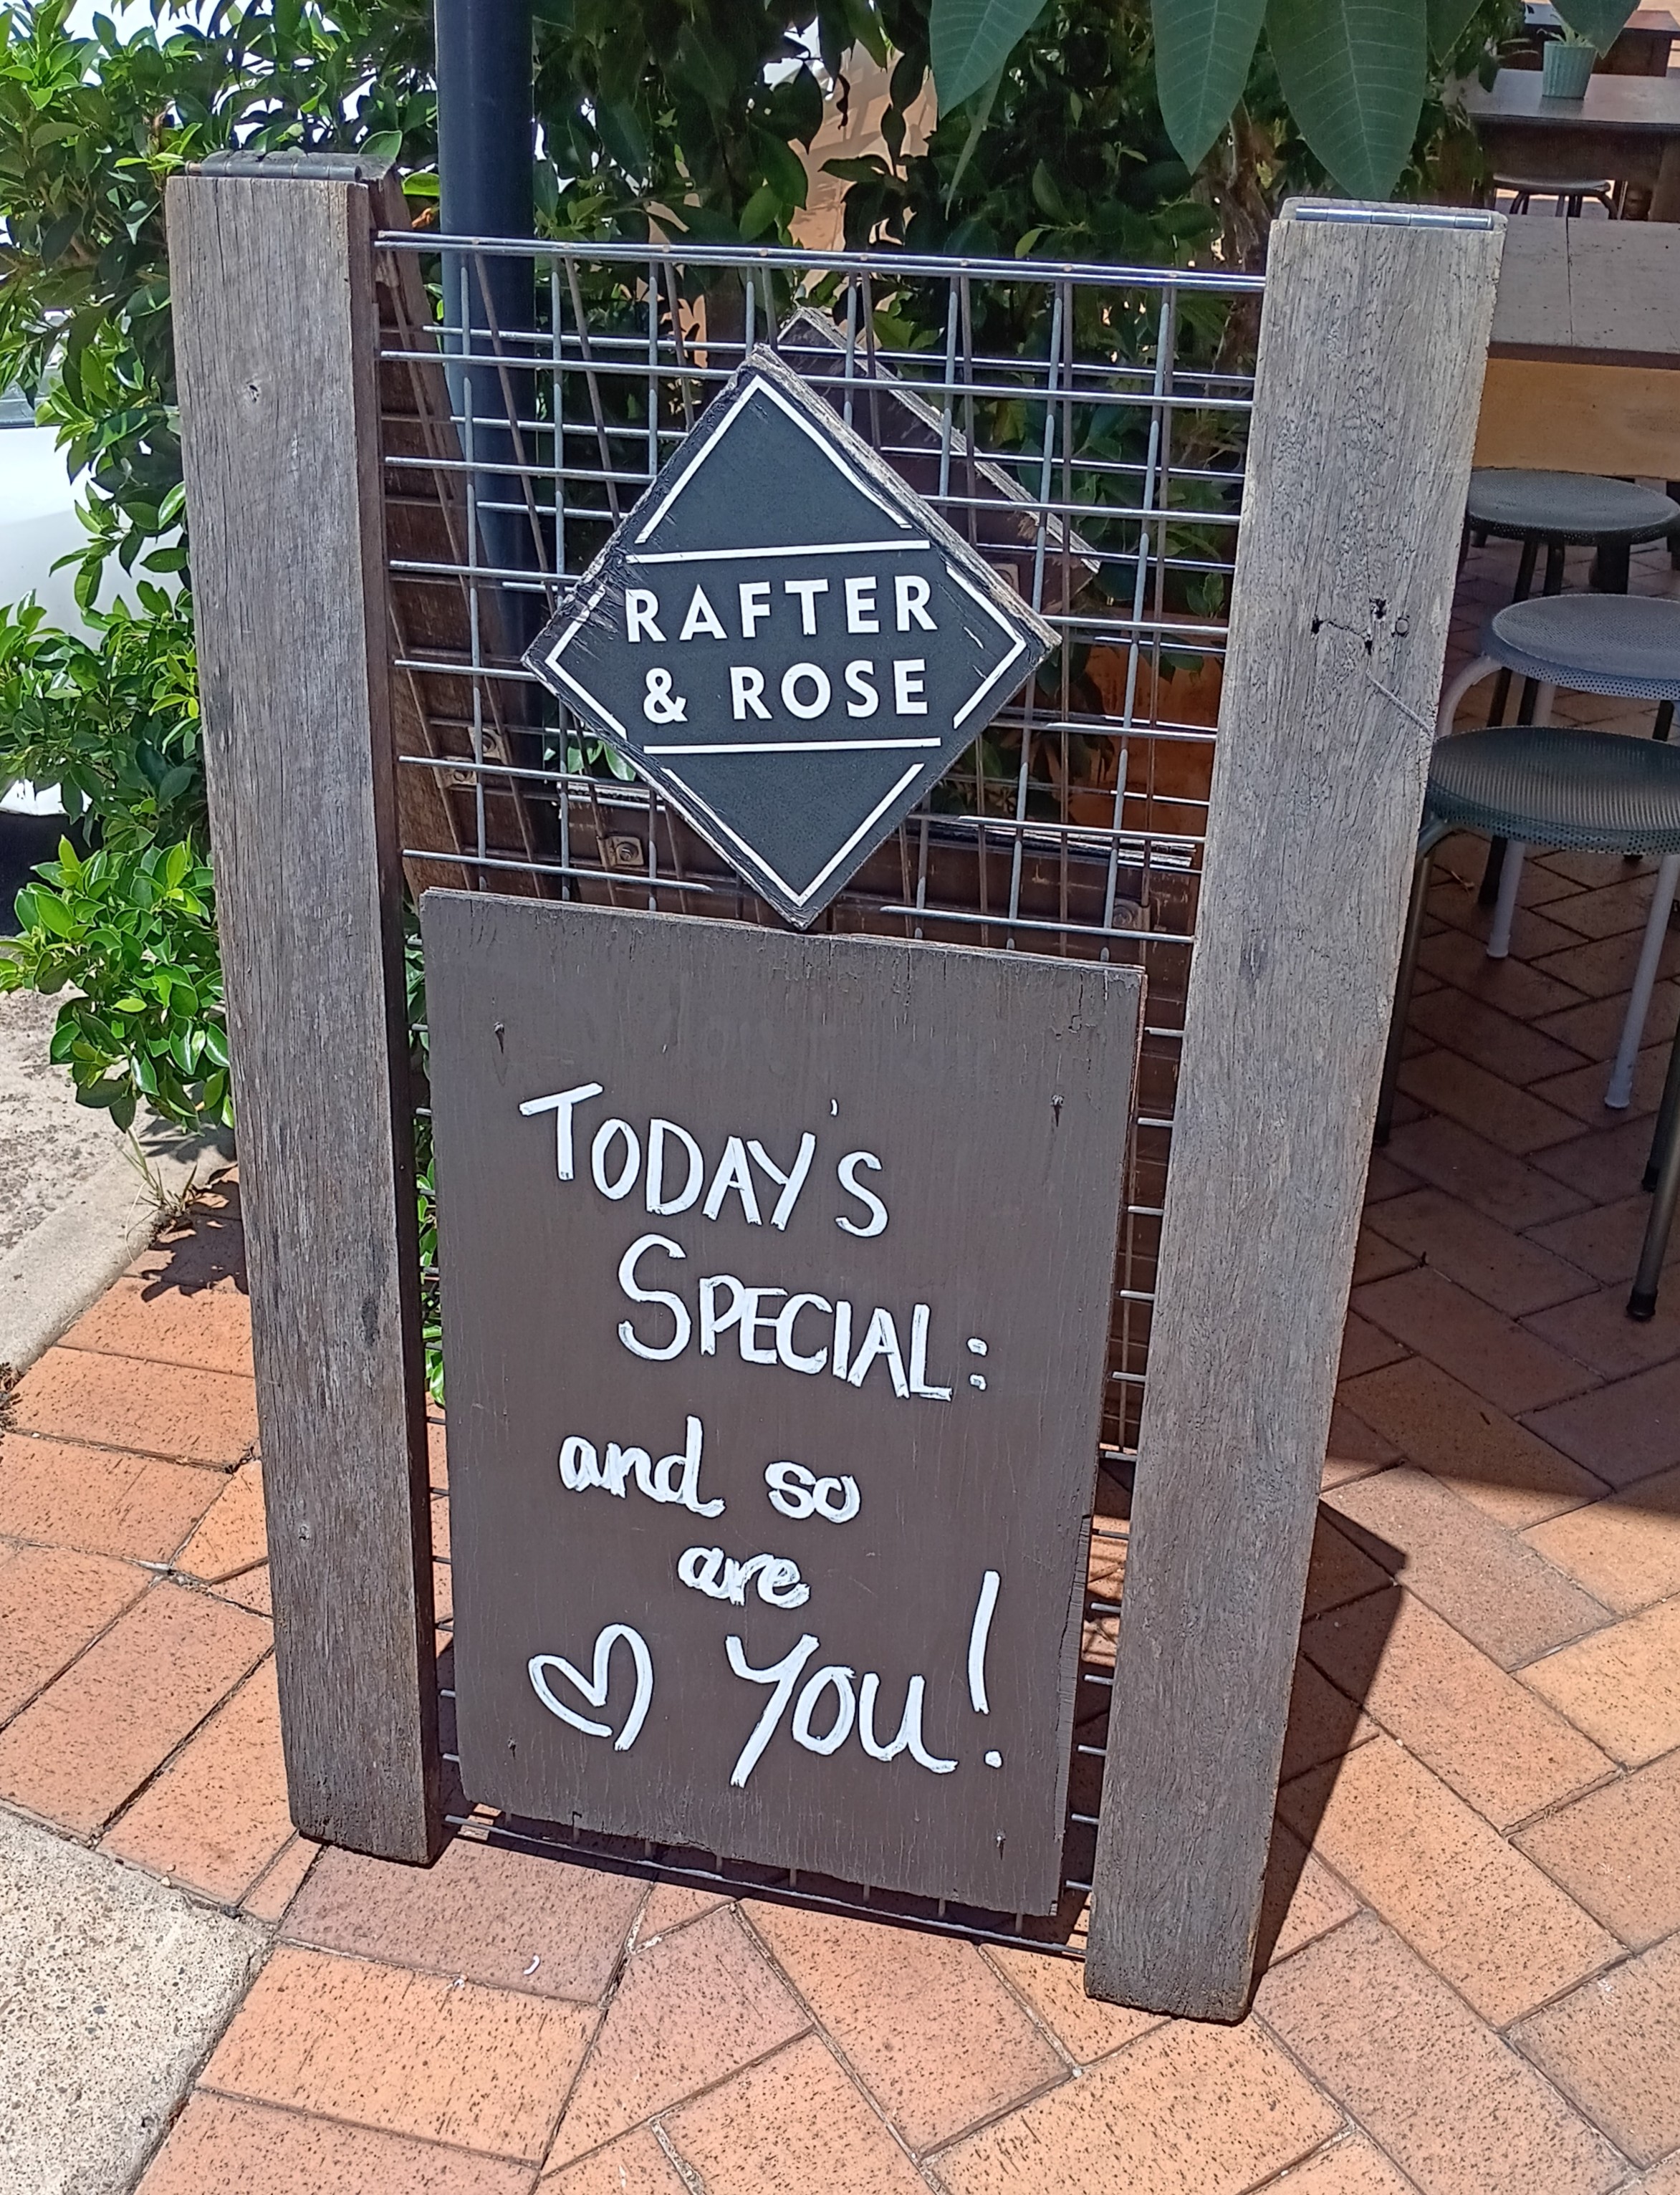 RAFTER
& ROSE
TODAY'S
SPECIAL:
and so
are
♡ YOU!